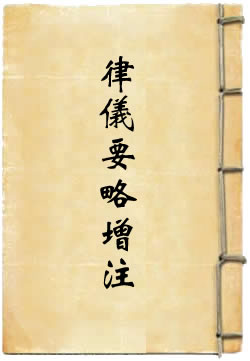 律儀要略增注